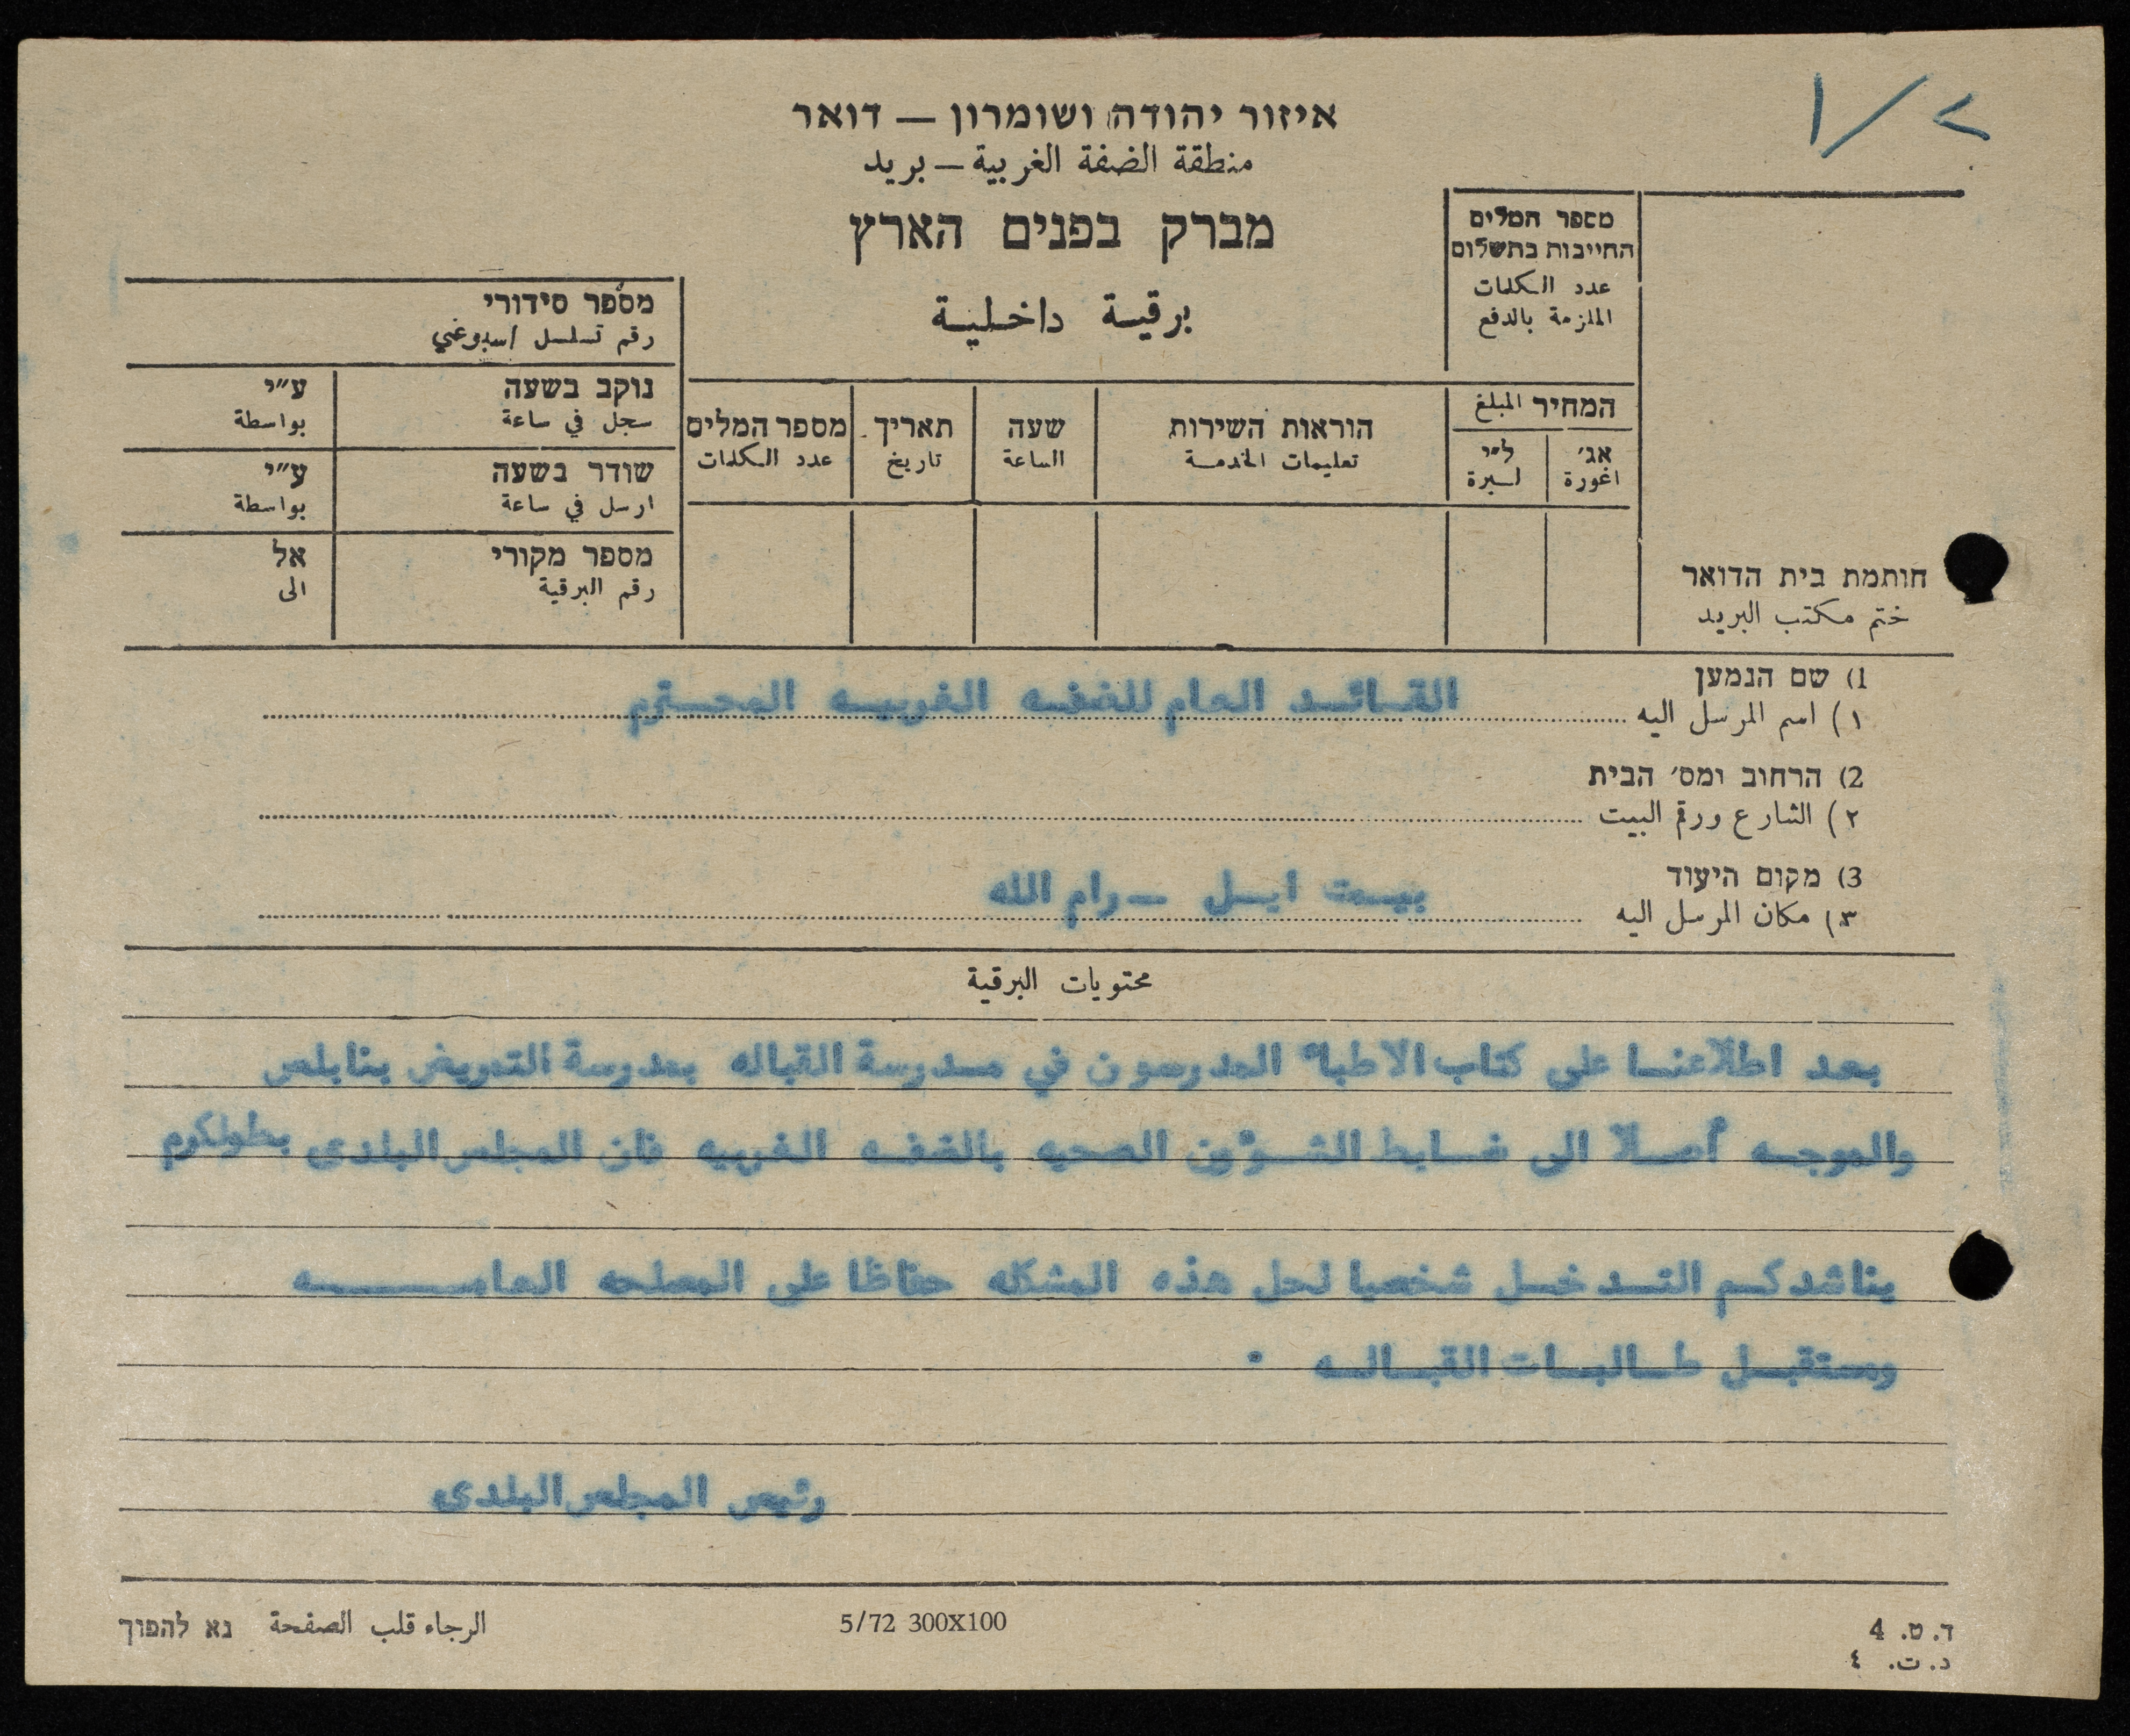 איזור יהודה ושומרון — דואר
منطقة الضفة الغربية — بريد
מברק בפנים הארץ
برقية داخلية
מספר המלים
החייבות בתשלום
عدد الكلمات
الملزمة بالدفع
המחיר المبلغ
אג׳ ל״י
اغورة ليرة
הוראות השירות
تعليمات الخدمة
שעה
الساعة
תאריך
تاريخ
מספר המלים
عدد الكلمات
מספר סידורי
رقم تسلسل اسبوعي
נוקב בשעה ע״י
سجل في ساعة بواسطة
שודר בשעה ע״י
ارسل في ساعة بواسطة
מספר מקורי אל
رقم البرقية الى
חותמת בית הדואר
ختم مكتب البريد
1) שם הנמען
١) اسم المرسل اليه القائد العام للضفه الغربيه المحترم
2) הרחוב ומס׳ הבית
٢) الشارع ورقم البيت
3) מקום היעוד
٣) مكان المرسل اليه بيت ايل — رام الله
محتويات البرقية
بعد اطلاعنا على كتاب الاطباء المدرسون في مدرسة القباله بمدرسة التمريض بنابلس
والموجه أصلا الى ضابط الشؤون الصحيه بالضفه الغربيه فان المجلس البلدى بطولكرم
يناشدكم التدخل شخصيا لحل هذه المشكله حفاظا على المصلحه العامه
ومستقبل طالبات القباله .
رئيس المجلس البلدى
ד. ט. 4
د. ت. ٤
5/72 300X100
الرجاء قلب الصفحة נא להפוך